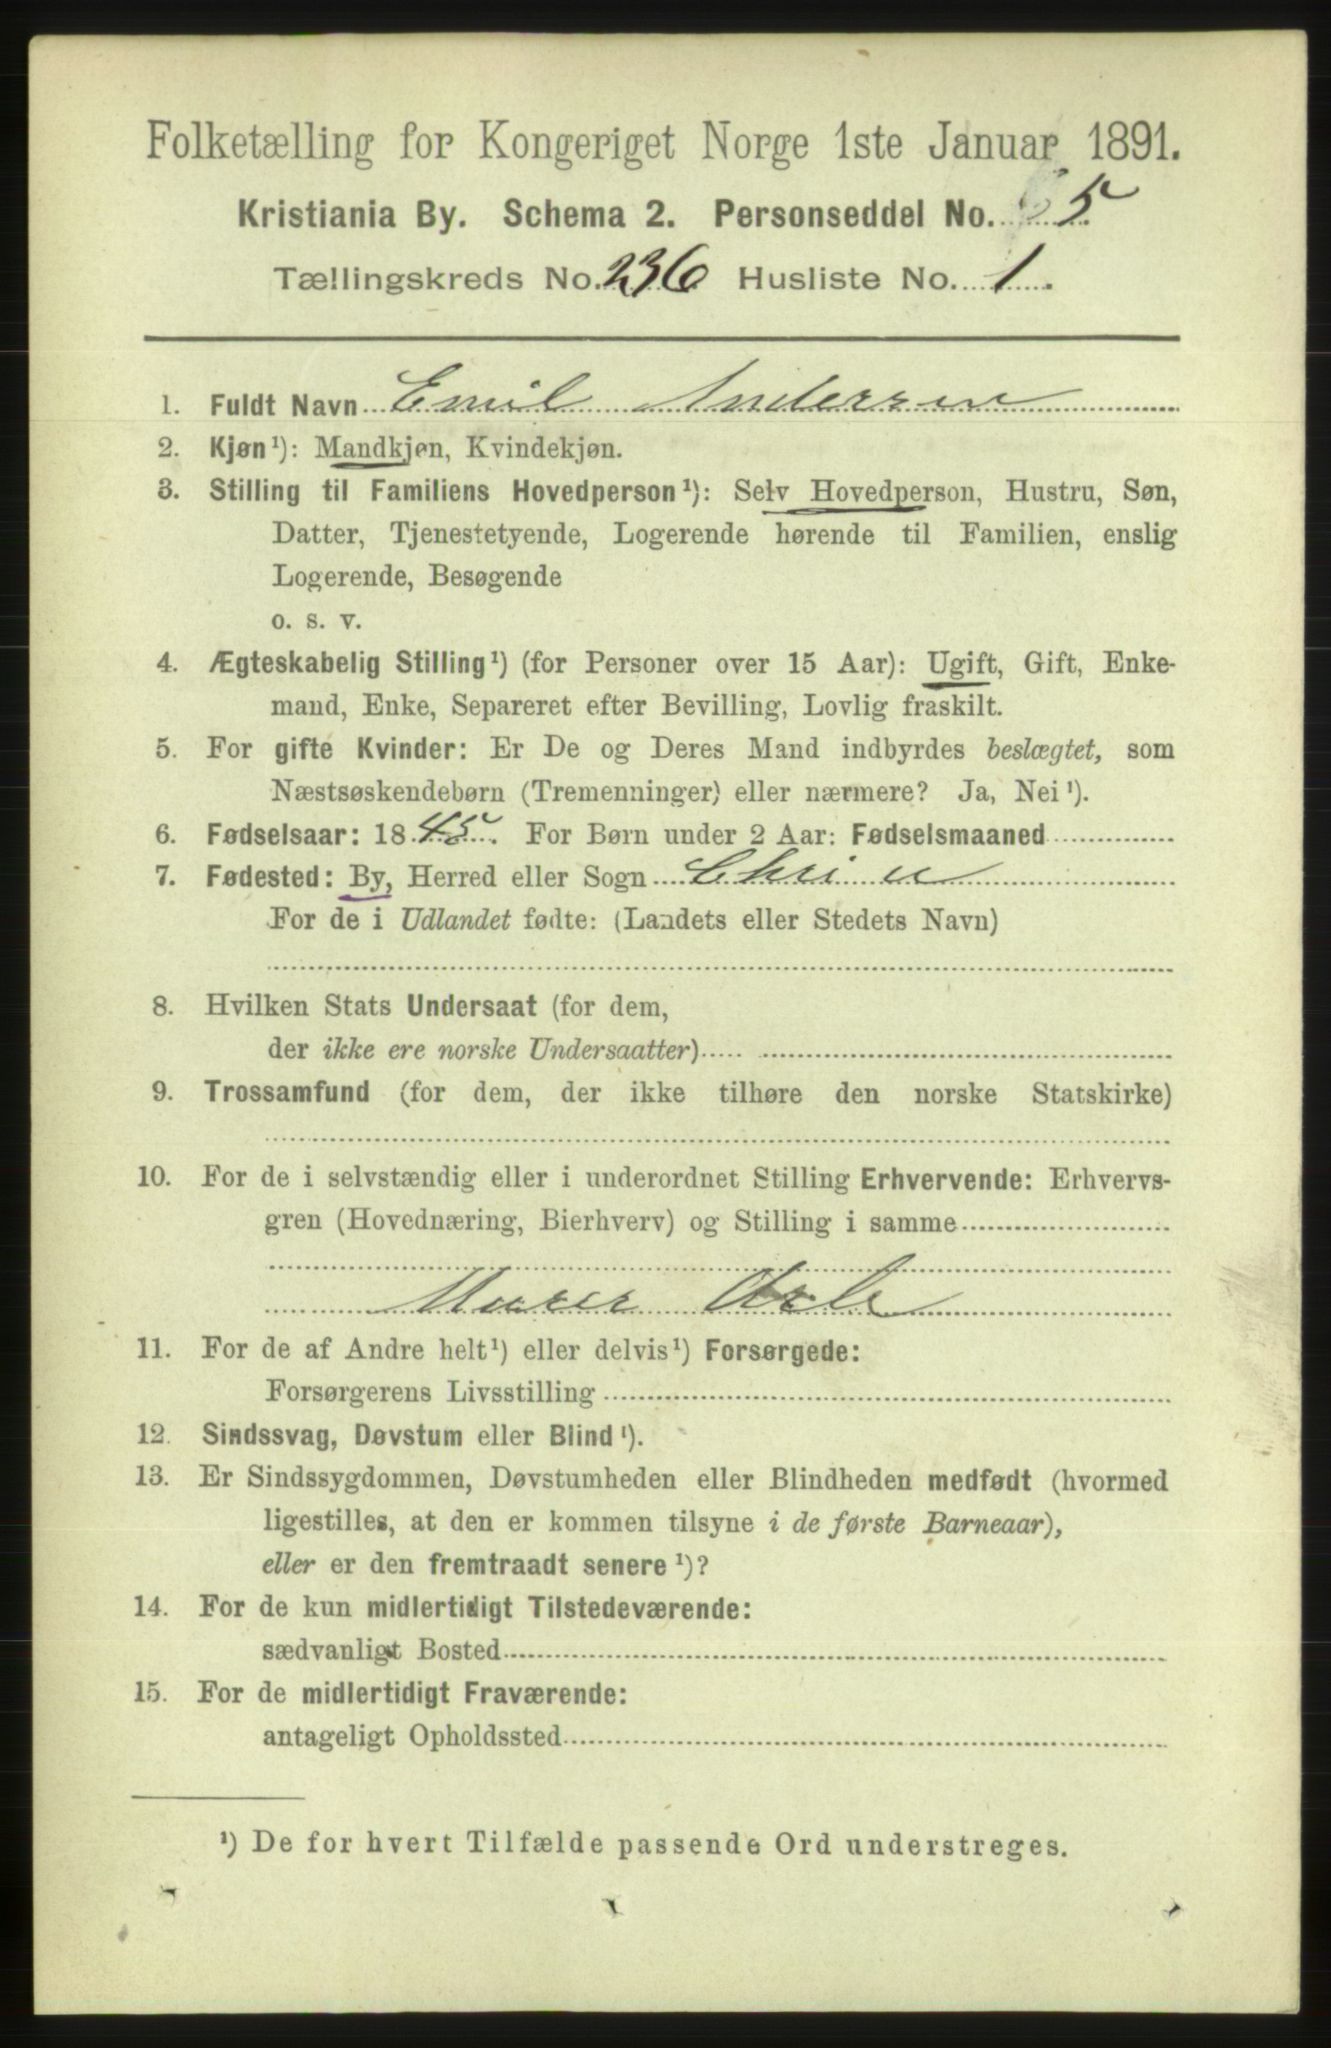 Folketælling for Kongeriget Norge 1ste Januar 1891.
Kristiania By. Schema 2. Personseddel No. 5
Tællingskreds No. 236 Husliste No. 1.
1. Fuldt Navn Emil Andersen
2. Kjøn¹): Mandkjøn, Kvindekjøn.
3. Stilling til Familiens Hovedperson¹): Selv Hovedperson, Hustru, Søn,
Datter, Tjenestetyende, Logerende hørende til Familien, enslig
Logerende, Besøgende
o. s. v.
4. Ægteskabelig Stilling¹) (for Personer over 15 Aar): Ugift, Gift, Enke-
mand, Enke, Separeret efter Bevilling, Lovlig fraskilt.
5. For gifte Kvinder: Er De og Deres Mand indbyrdes beslægtet, som
Næstsøskendebørn (Tremenninger) eller nærmere? Ja, Nei¹).
6. Fødselsaar: 1845. For Børn under 2 Aar: Fødselsmaaned
7. Fødested: By, Herred eller Sogn Chri
For de i Udlandet fødte: (Landets eller Stedets Navn)
8. Hvilken Stats Undersaat (for dem,
der ikke ere norske Undersaatter)
9. Trossamfund (for dem, der ikke tilhøre den norske Statskirke)
10. For de i selvstændig eller i underordnet Stilling Erhvervende: Erhvervs-
gren (Hovednæring, Bierhverv) og Stilling i samme
Murer Arb
11. For de af Andre helt¹) eller delvis¹) Forsørgede:
Forsørgerens Livsstilling
12. Sindssvag, Døvstum eller Blind¹).
13. Er Sindssygdommen, Døvstumheden eller Blindheden medfødt (hvormed
ligestilles, at den er kommen tilsyne i de første Barneaar),
eller er den fremtraadt senere¹)?
14. For de kun midlertidigt Tilstedeværende:
sædvanligt Bosted
15. For de midlertidigt Fraværende:
antageligt Opholdssted
¹) De for hvert Tilfælde passende Ord understreges.